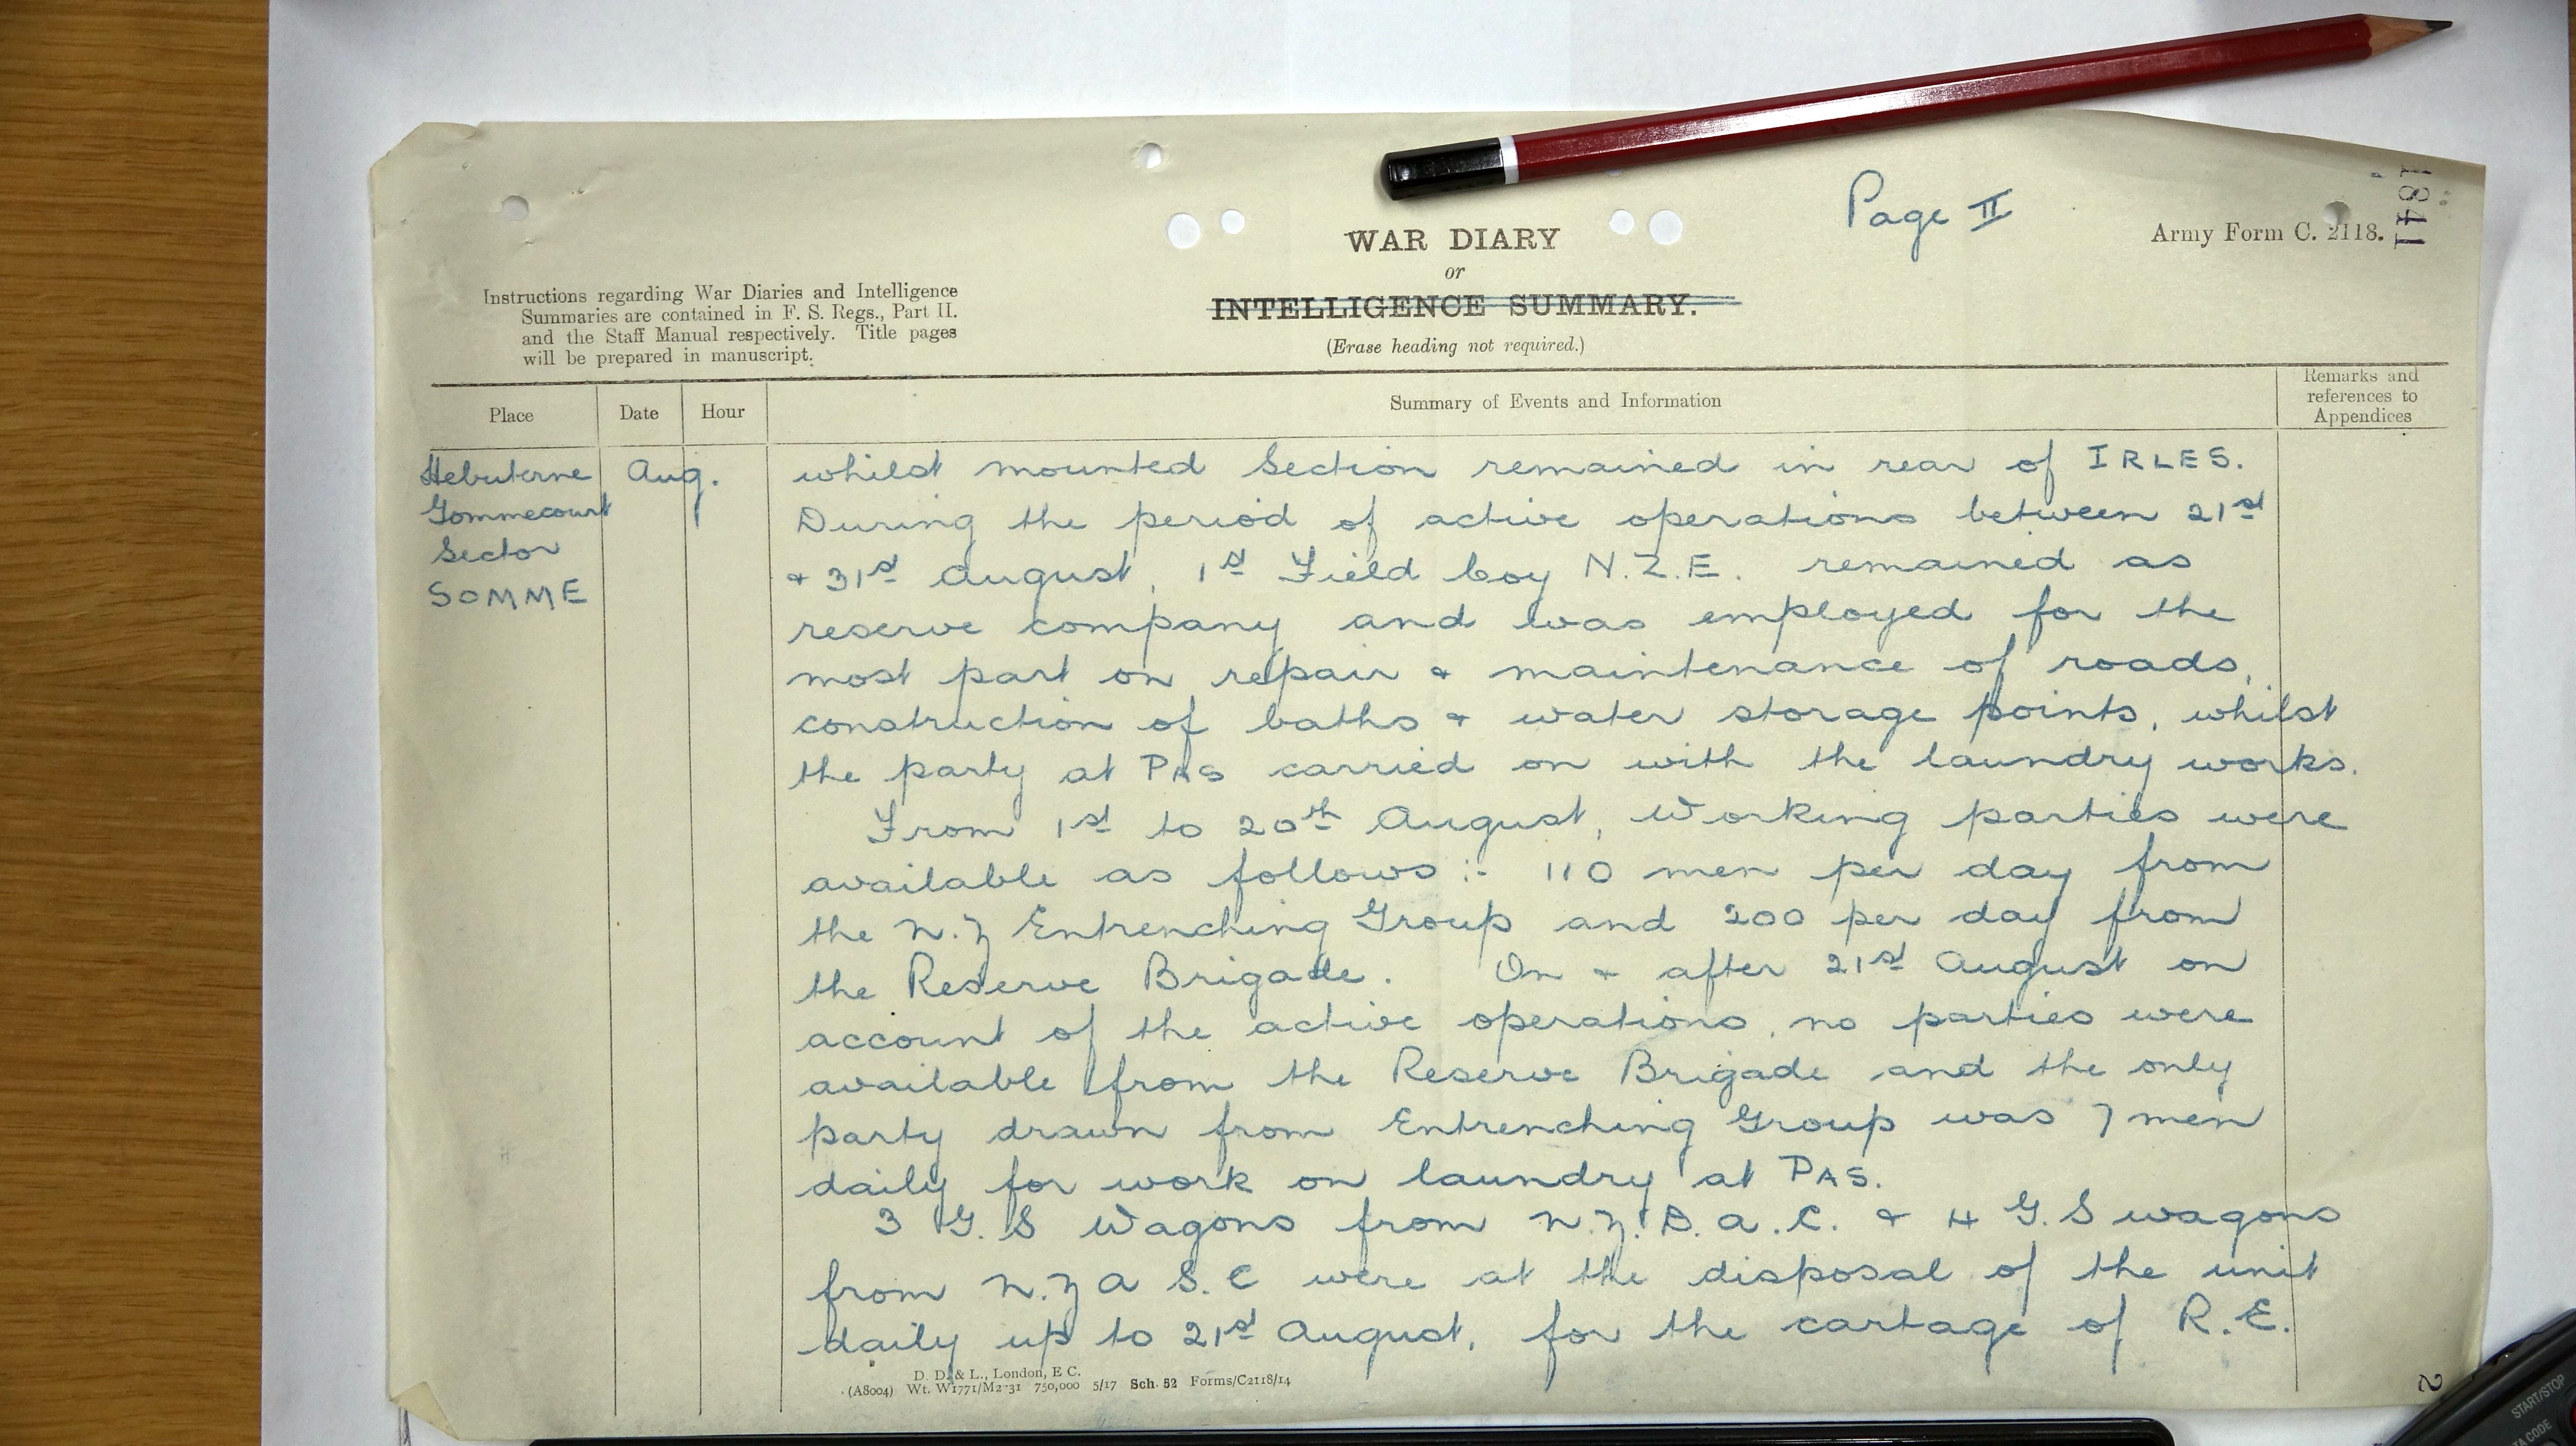 Page II
1841
Army Form C. 2118.
WAR DIARY
or
INTELLIGENCE SUMMARY.
(Erase heading not required.)
Instructions regarding War Diaries and Intelligence
Summaries are contained in F. S. Regs., Part II.
and the Staff Manual respectively. Title pages
will be prepared in manuscript.
Place Date Hour Summary of Events and Information Remarks and references to Appendices
Hebuterne Aug.
Gommecourt
Sector
SOMME
whilst mounted Section remained in rear of IRLES.
During the period of active operations between 21st
& 31st August, 1st Field Coy N.Z.E. remained as
reserve company and was employed for the
most part on repair & maintenance of roads,
construction of baths & water storage points, whilst
the party at PAS carried on with the laundry works.
From 1st to 20th August, Working parties were
available as follows :- 110 men per day from
the N.Z Entrenching Group and 200 per day from
the Reserve Brigade. On & after 21st August on
account of the active operations, no parties were
available from the Reserve Brigade and the only
party drawn from Entrenching Group was 7 men
daily for work on laundry at PAS.
3 G.S Wagons from N.Z.D.A.C. & 4 G.S wagons
from N.Z A S.C were at the disposal of the unit
daily up to 21st August, for the cartage of R.E.
D. D. & L., London, E C.
(A8004) Wt. W1771/M2 31 750,000 5/17 Sch. 52 Forms/C2118/14
2
START/STOP
A CODE